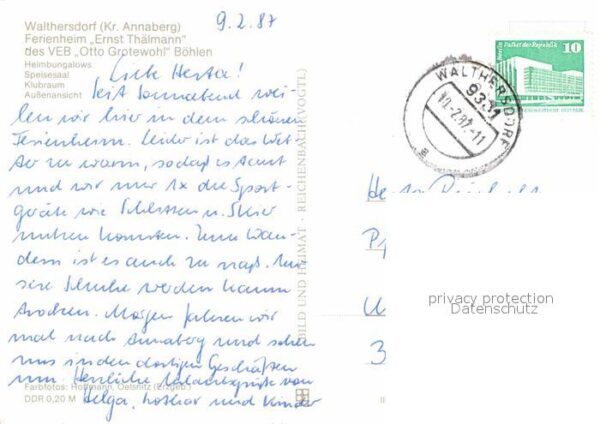 Walthersdorf (Kr. Annaberg)
Ferienheim „Ernst Thälmann"
des VEB „Otto Grotewohl" Böhlen
Heimbungalows
Speisesaal
Klubraum
Außenansicht
9.2.87
Liebe Herta!
Seit Sonnabend wei-
len wir hier in dem schönen
Ferienheim. Leider ist das Wet-
ter zu warm, sodaß es taut
und wir nur 1x die Sport-
geräte wie Schlitten u. Skier
nutzen konnten. Zum Wan-
dern ist es auch zu naß. Un-
sere Schuhe werden kaum
trocken. Morgen fahren wir
mal nach Annaberg und sehen
uns in den dortigen Geschäften
um. Herzliche Urlaubsgrüße von
Helga, Lothar und Kinder
Farbfotos: Hoffmann, Oelsnitz (Erzgeb.)
DDR 0,20 M
BILD UND HEIMAT · REICHENBACH (VOGTL)
WALTHERSDORF
9331
10.-2.87-11
a
Berlin Palast der Republik
10
privacy protection
Datenschutz